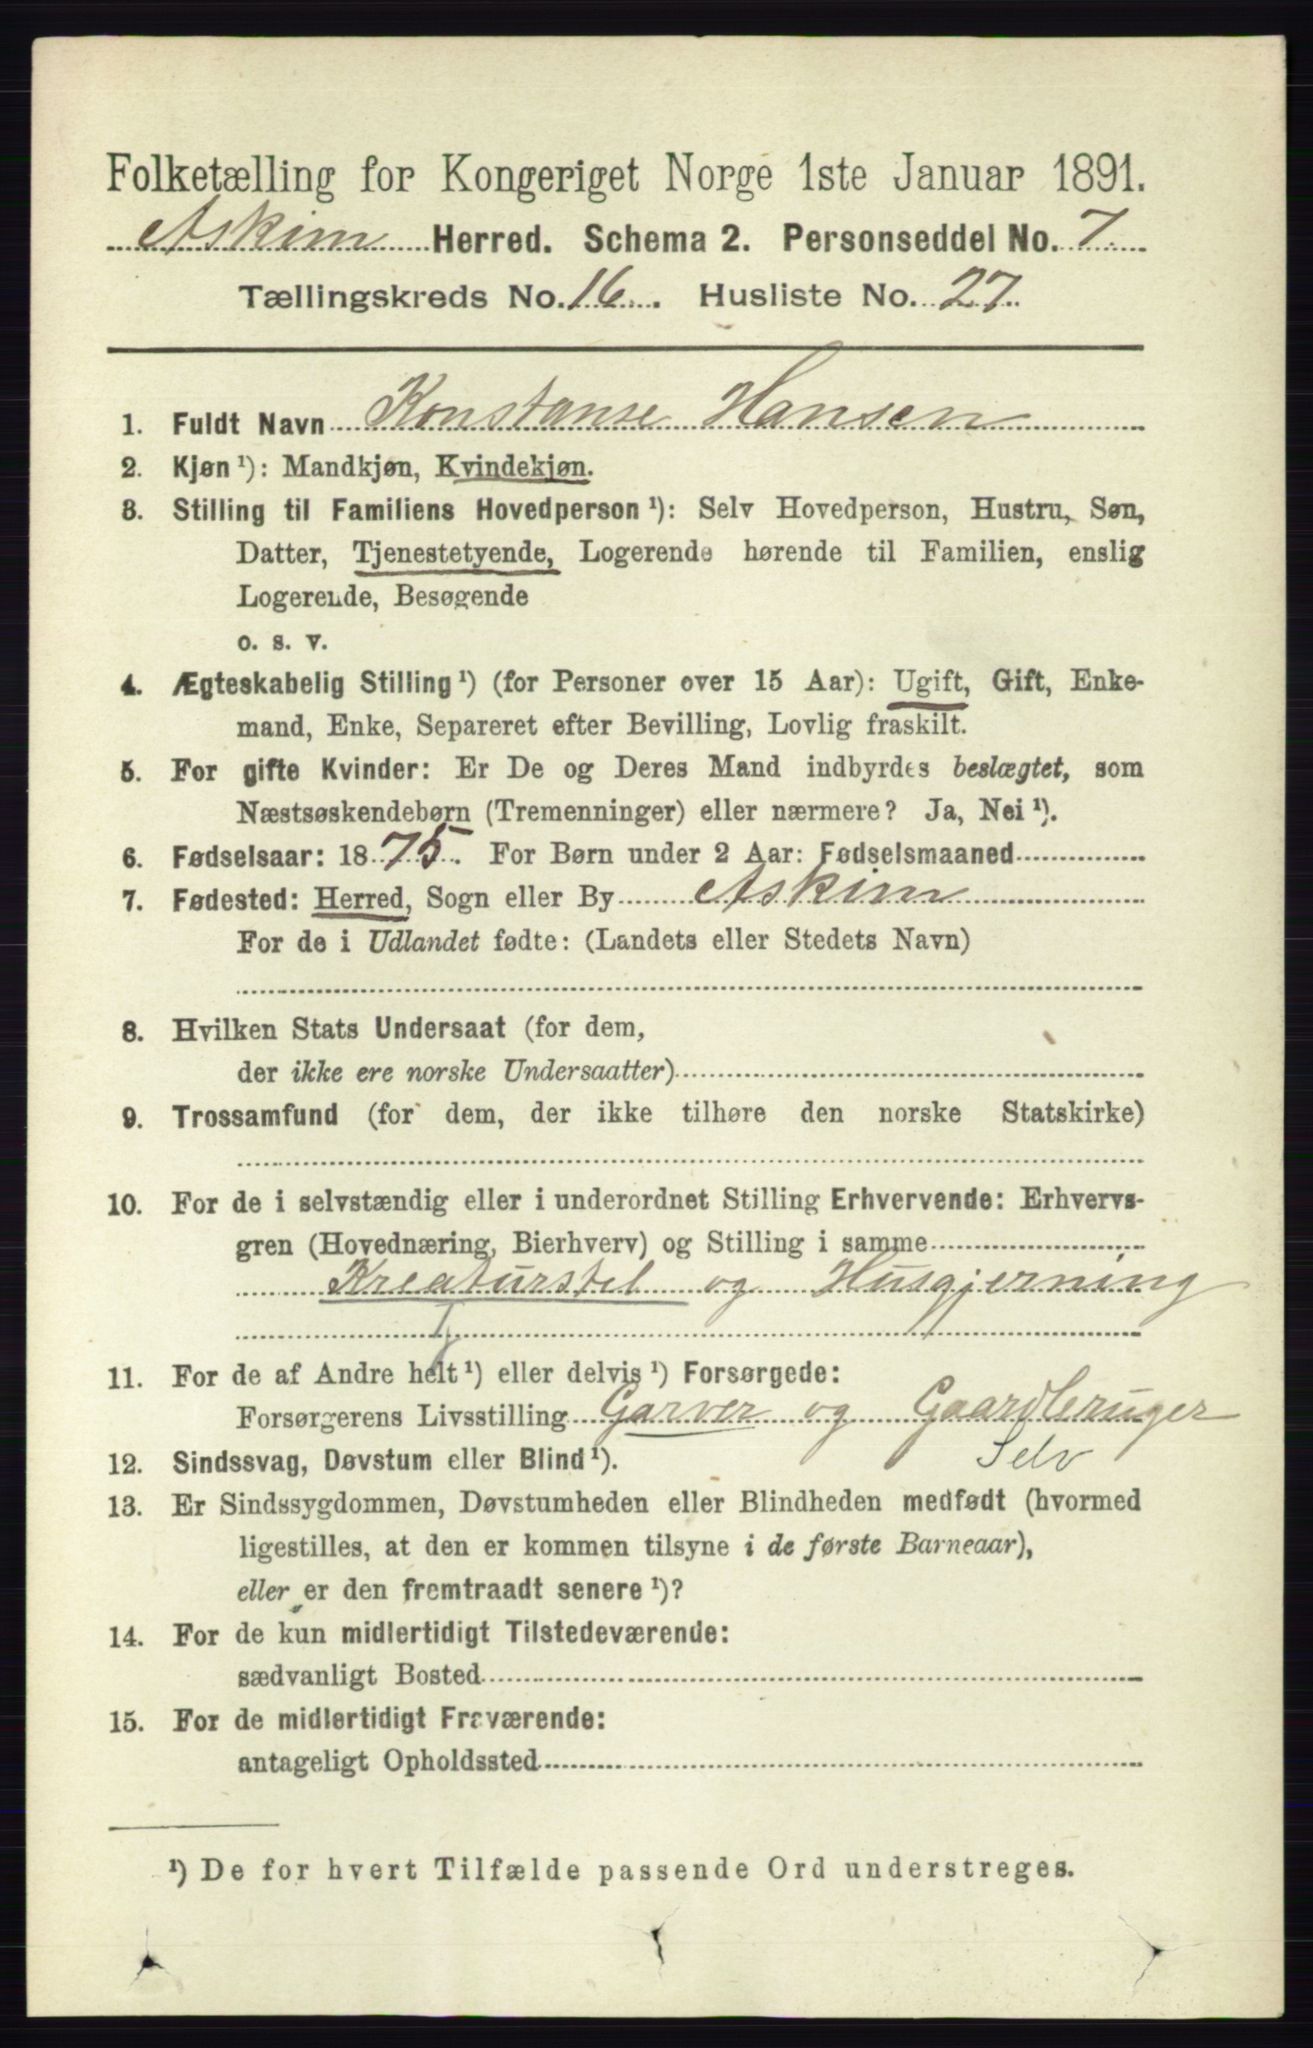 Folketælling for Kongeriget Norge 1ste Januar 1891.
Askim Herred. Schema 2. Personseddel No. 7
Tællingskreds No. 16. Husliste No. 27
1. Fuldt Navn Konstanse Hansen
2. Kjøn ¹): Mandkjøn, Kvindekjøn.
3. Stilling til Familiens Hovedperson ¹): Selv Hovedperson, Hustru, Søn,
Datter, Tjenestetyende, Logerende hørende til Familien, enslig
Logerende, Besøgende
o. s. v.
4. Ægteskabelig Stilling ¹) (for Personer over 15 Aar): Ugift, Gift, Enke-
mand, Enke, Separeret efter Bevilling, Lovlig fraskilt.
5. For gifte Kvinder: Er De og Deres Mand indbyrdes beslægtet, som
Næstsøskendebørn (Tremenninger) eller nærmere? Ja, Nei ¹).
6. Fødselsaar: 1875. For Børn under 2 Aar: Fødselsmaaned
7. Fødested: Herred, Sogn eller By Askim
For de i Udlandet fødte: (Landets eller Stedets Navn)
8. Hvilken Stats Undersaat (for dem,
der ikke ere norske Undersaatter)
9. Trossamfund (for dem, der ikke tilhøre den norske Statskirke)
10. For de i selvstændig eller i underordnet Stilling Erhvervende: Erhvervs-
gren (Hovednæring, Bierhverv) og Stilling i samme
Kreaturstel og Husgjerning
11. For de af Andre helt ¹) eller delvis ¹) Forsørgede:
Forsørgerens Livsstilling Garver og Gaardbruger
Selv
12. Sindssvag, Døvstum eller Blind ¹).
13. Er Sindssygdommen, Døvstumheden eller Blindheden medfødt (hvormed
ligestilles, at den er kommen tilsyne i de første Barneaar),
eller er den fremtraadt senere ¹)?
14. For de kun midlertidigt Tilstedeværende:
sædvanligt Bosted
15. For de midlertidigt Fraværende:
antageligt Opholdssted
¹) De for hvert Tilfælde passende Ord understreges.